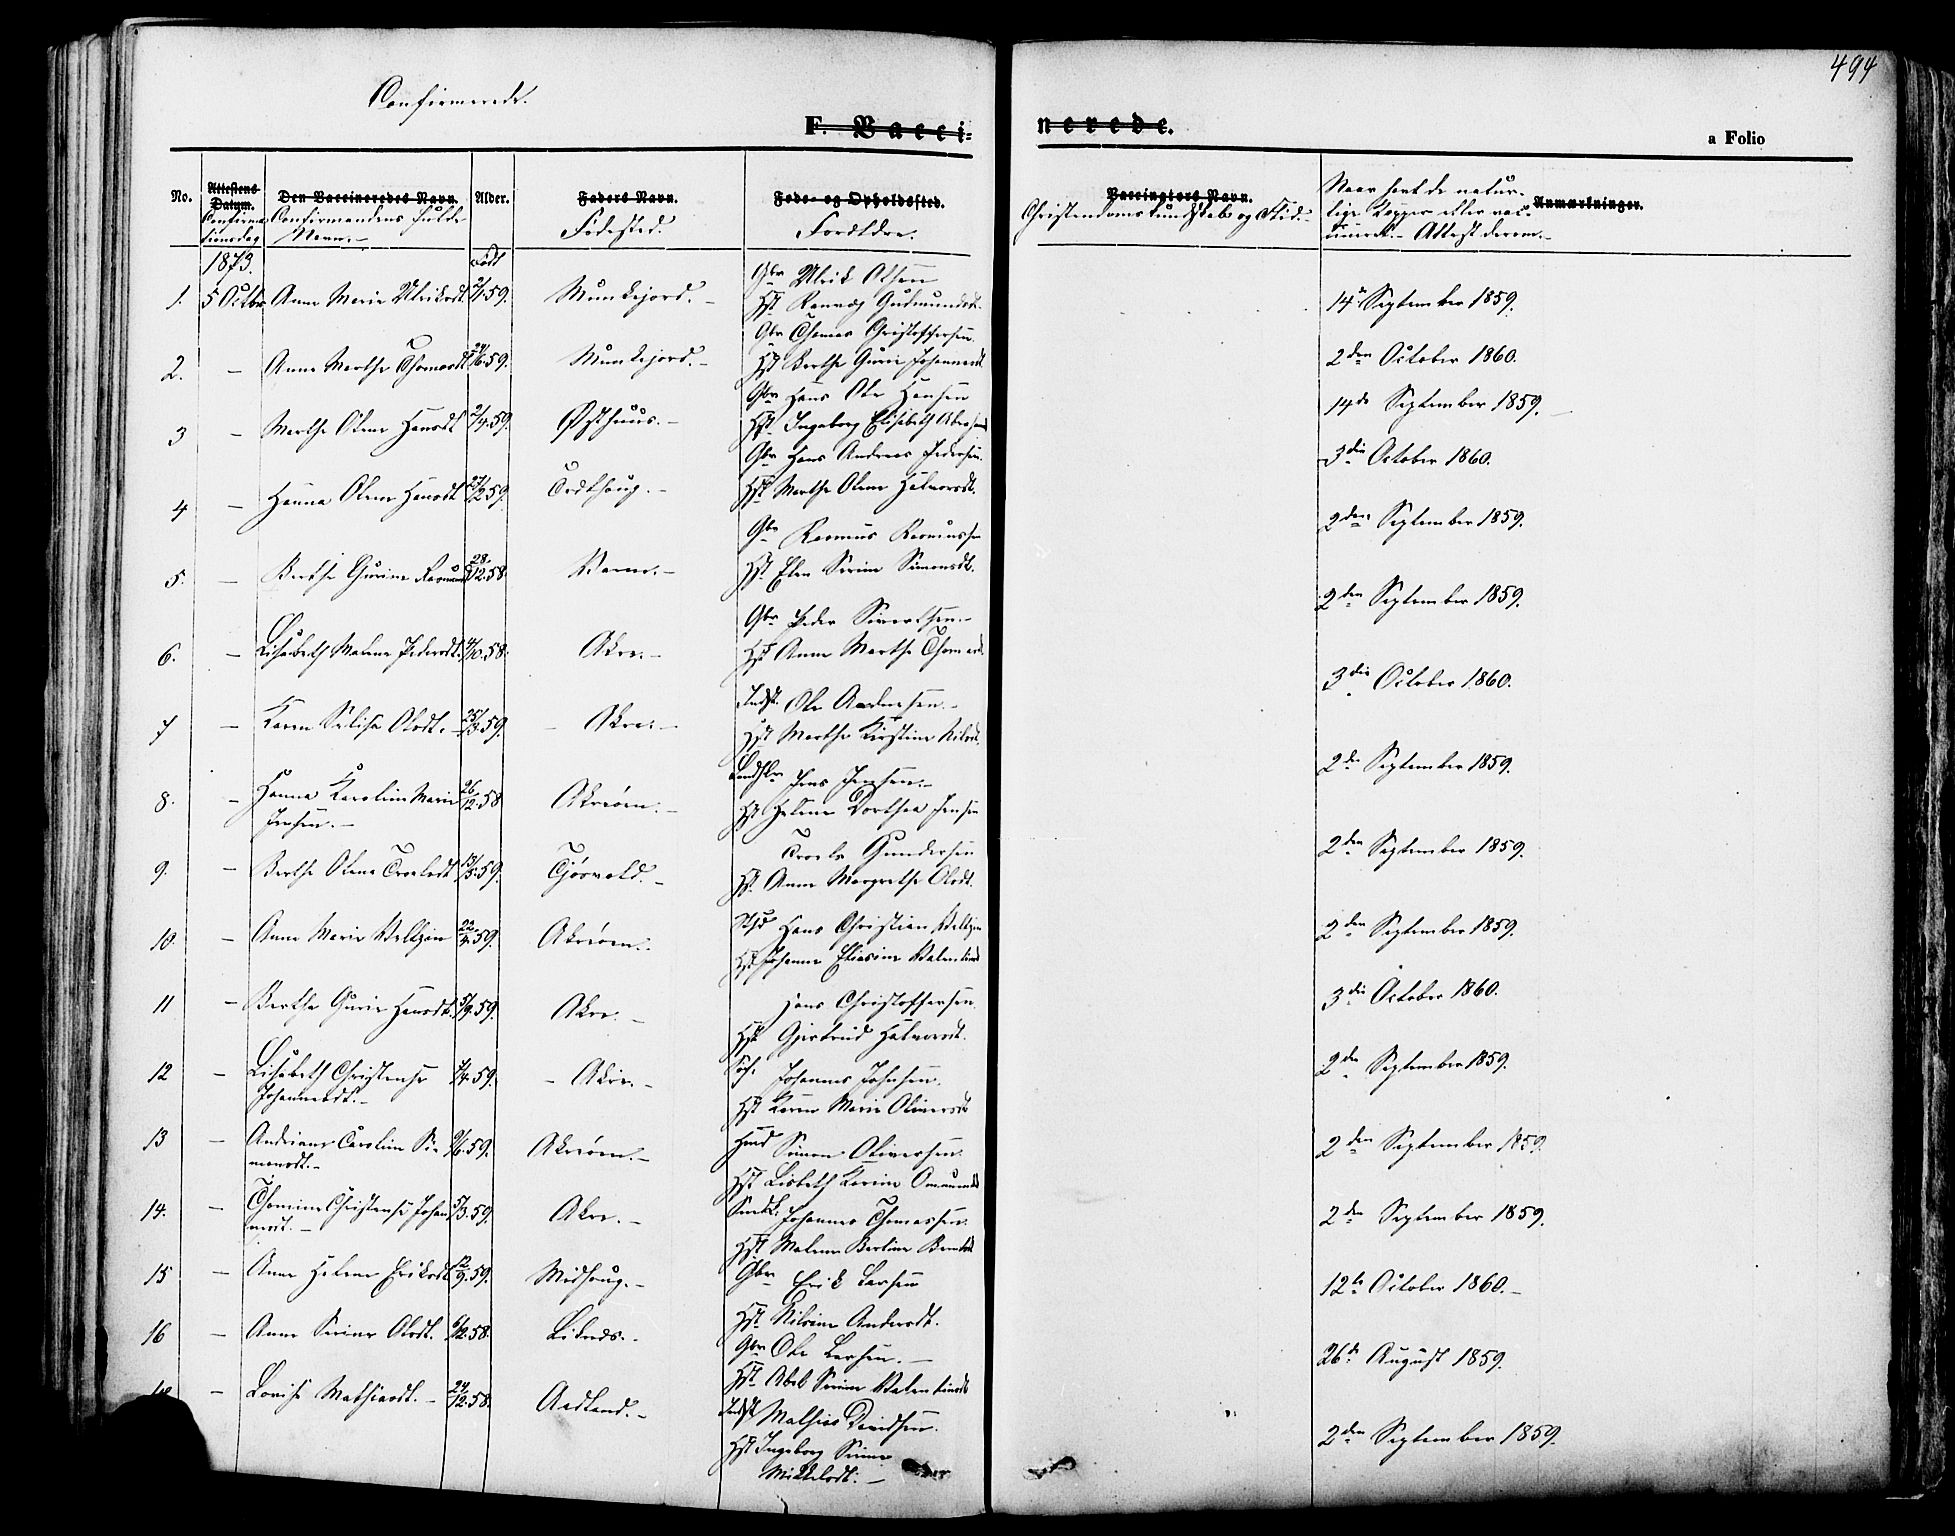 494
Confirmerede.
F. Vaccinerede.
a Folio
No.
Attestens Datum.
Confirmationsdag
Den Vaccineredes Navn.
Confirmandens fulde Navn.-
Alder.
Født
Faders Navn.
Fødested.
Føde- og Opholdssted.
Forældre.
Vaccinators Navn.
Christendomskundskab og Flid.-
Anmærkninger.
Naar havt de naturlige Kopper eller vaccineret.- Attest derom.-
1873.
1. 5 Octbr Anne Marie Ulriksdt. 2/1.59. Munkejord.- Gbr Ulrik Olsen
Hst. Ranveg Gudmundsdt. 14de September 1859.
2. - Anne Marthe Thomasdt. 24/6.59. Munkejord.- Gbr Thomas Christoffersen
Hst Berthe Gurie Johannesdt 2den October 1860.
3 - Marthe Olene Hansdt 2/4.59. Østhuus.- Gbr Hans Ole Hansen
Hst. Ingeborg Elisabeth 14de September 1859.-
4 - Hanna Olene Hansdt 27/2 59. Gbr Hans Andreas Pedersen.
Hst Marthe Olene Halvorsdt. 3die October 1860.
5. - Berthe Gurine 28/12.58. Gbr Rasmus Rasmussen
Hst. Elen Serine Simonsdt. 2den September 1859.
6. - Lisabeth Malene Pedersdt. 4/10.58. Akre.- Gbr Peder Sivertsen.-
Hst Anne Marthe Thomasdt. 2den September 1859.
7 - Karen Olsdt.- 25/3.59. - Akre.- Indst. Ole Andersen.-
Hst Marthe Kirstine Nilsdt. 3die October 1860.
8. - Hanna Karoline Marie
Jensen.- 26/12.58 Akreøen.- Jens Jensen.-
Hst Helene Dorthea Jensen 2den September 1859.
9. - Berthe Olena Troelsdt 13/5.59. Tjøsvold.- Troels Gundersen
Hst. Anne Margrethe Olsdt. 2den September 1859.
10. - Anne Marie Veltzin 22/4.59. Akreøen.- Hans Christian Veltzin
Hst Johanne Eliasine 2den September 1859.
11 - Berthe Gurie Hansdt. 5/9.59. Akre.- Hans Christoffersen.
Hst Gjertrud Halvorsdt. 3die October 1860.
12 - Lisabeth Christense
Johannesdt.- 7/4.59. - Akre.- Johannes Johnsen.
Hst Karen Marie Oliversdt 2den September 1859.
13 - Andriane Caroline Simonsdt.- 9/6.59. Akreøen.- Huusd Simon Oliversen.
Hst Lisbeth Karine 2den September 1859.
14. - Thomine Christense Johannesdt.- 5/3.59. Akre.- Johannes Thomassen.
Hst Malene Berline 2den September 1859.
15 - Anne Helene Eriksdt 12/9.59. Midhaug.- Gbr Erik Larsen
Hst. Nilsine Andersdt. 12te October 1860.-
16 - Anne Serine Olsdt. 6/12.58. Liknes.- Gbr Ole Larsen.-
Hst. Abel Serine 26de August 1859.
- Lovise Mathiasdt.- 24/12.58. Aadland.- Indst Mathias Davidsen.
Hst Ingeborg Serine
Mikkelsdt.- 2den September 1859.